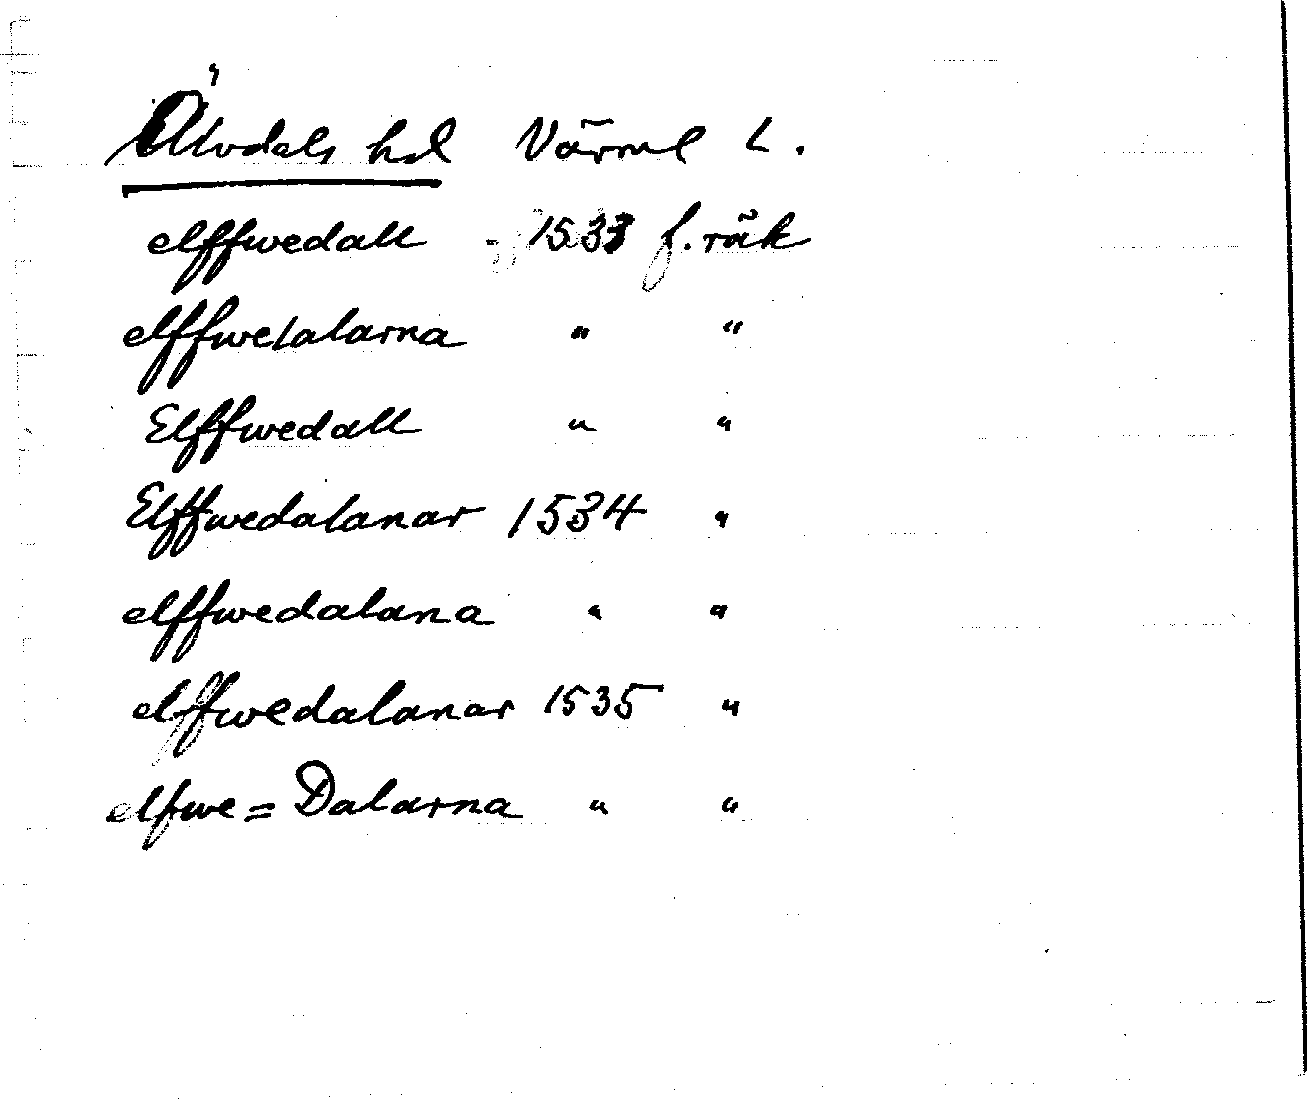 Älvdals hd Värml L.
elffwedall - 1533 f. räk
elffwetalarna " "
Elffwedall " "
Elffwedalanar 1534 "
elffwedalana " "
elffwedalanar 1535 "
elfwe= Dalarna " "